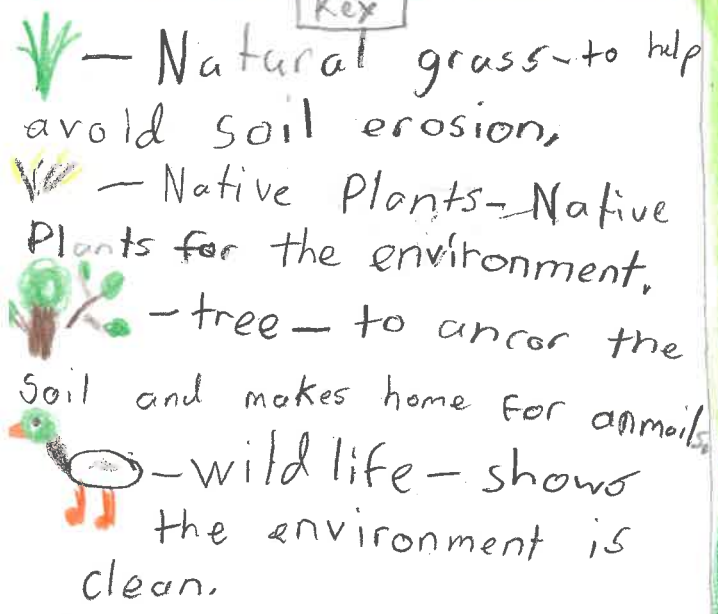 Key
— Natural grass - to help
avoid soil erosion,
— Native Plants - Native
Plants for the environment,
— tree — to ancor the
Soil and makes home for anmails.
— wild life — shows
the environment is
clean.